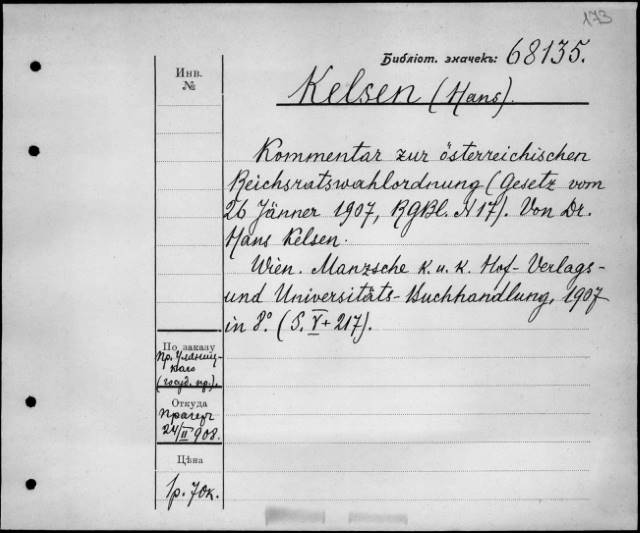 173
Библіот. значекъ: 68135.
Инв.
№
Kelsen (Hans).
Kommentar zur österreichischen
Reichsratswahlordnung (Gesetz vom
26 Jänner 1907, RGBl. N 17). Von Dr.
Hans Kelsen.
Wien. Manzsche K. u. K. Hof-Verlags-
und Universitäts-Buchhandlung, 1907
in 8° (S. V + 217).
По заказу
пр. Уляниц-
каго
(госуд. пр.).
Откуда
Прагеръ
24/II 908.
Цѣна
1р. 70к.